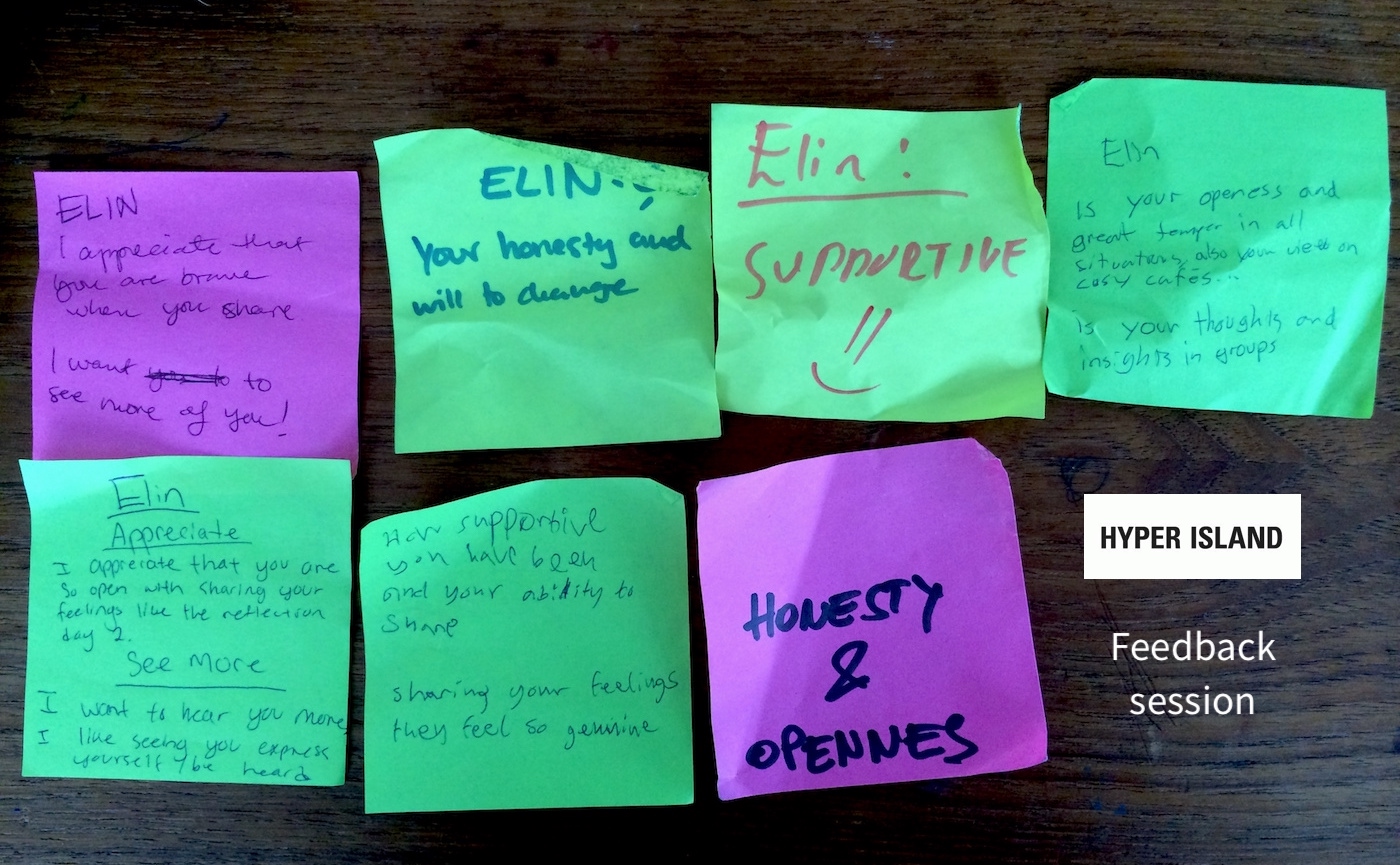 ELIN
I appreciate that
you are brave
when you share
I want to
see more of you!
ELIN
Your honesty and
will to change
Elin:
SUPPORTIVE
Elin
Is your openess and
great temper in all
situations, also your view on
cosy cafés...
is your thoughts and
insights in groups
Elin
Appreciate
I appreciate that you are
so open with sharing your
feelings like the reflection
day 2.
See More
I want to hear you more,
I like seeing you express
yourself / be heard
How supportive
you have been
and your ability to
share
sharing your feelings
they feel so genuine
HONESTY
&
OPENNES
HYPER ISLAND
Feedback
session